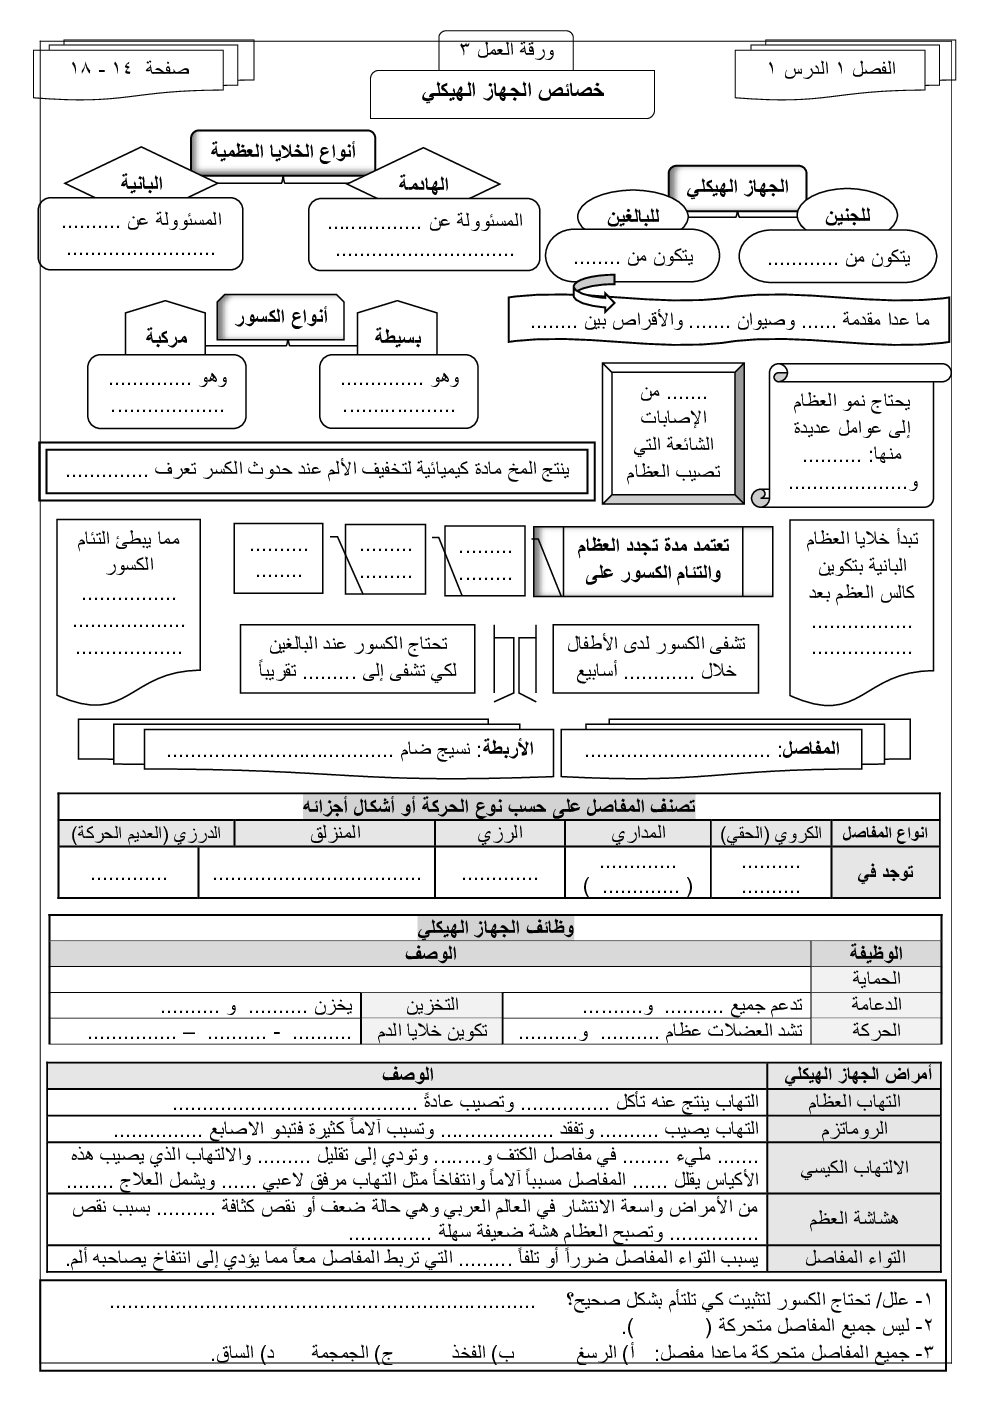 ورقة العمل ٣
الفصل ١ الدرس ١
صفحة ١٤ - ١٨
خصائص الجهاز الهيكلي
الجهاز الهيكلي
للجنين
للبالغين
يتكون من ............
يتكون من ........
ما عدا مقدمة ...... وصيوان ....... والأقراص بين ........
أنواع الخلايا العظمية
الهادمة
البانية
المسئوولة عن ................
...............................
المسئوولة عن ..........
..........................
أنواع الكسور
بسيطة
مركبة
وهو ..............
....................
وهو ..............
....................
يحتاج نمو العظام
إلى عوامل عديدة
منها: ..........
و.....................
....... من
الإصابات
الشائعة التي
تصيب العظام
ينتج المخ مادة كيميائية لتخفيف الألم عند حدوث الكسر تعرف ..............
تبدأ خلايا العظام
البانية بتكوين
كالس العظم بعد
.................
.................
تعتمد مدة تجدد العظام
والتنام الكسور على
..........
..........
.........
.........
..........
........
مما يبطئ التئام
الكسور
................
...................
..................
تشفى الكسور لدى الأطفال
خلال ............ أسابيع
تحتاج الكسور عند البالغين
لكي تشفى إلى ......... تقريباً
المفاصل: ................................
الأربطة: نسيج ضام .......................................
تصنف المفاصل على حسب نوع الحركة أو أشكال أجزائه
انواع المفاصل الكروي (الحقي) المداري الرزي المنزلق الدرزي (العديم الحركة)
توجد في .......... .......... ............. ( ............. ) ............. .................................... .............
وظائف الجهاز الهيكلي
الوظيفة الوصف
الحماية
الدعامة تدعم جميع .......... و.......... التخزين يخزن .......... و ..........
الحركة تشد العضلات عظام .......... و.......... تكوين خلايا الدم .......... - .......... – ...............
أمراض الجهاز الهيكلي الوصف
التهاب العظام التهاب ينتج عنه تآكل ............... وتصيب عادةً ..........................................
الروماتزم التهاب يصيب .......... وتفقد ................... وتسبب آلاماً كثيرة فتبدو الاصابع ...............
الالتهاب الكيسي ....... مليء ........ في مفاصل الكتف و........ وتودي إلى تقليل ......... والالتهاب الذي يصيب هذه
الأكياس يقلل ...... المفاصل مسبباً آلاماً وانتفاخاً مثل التهاب مرفق لاعبي ...... ويشمل العلاج ........
هشاشة العظم من الأمراض واسعة الانتشار في العالم العربي وهي حالة ضعف أو نقص كثافة .......... بسبب نقص
............... وتصبح العظام هشة ضعيفة سهلة ..............
التواء المفاصل يسبب التواء المفاصل ضرراً أو تلفاً ......... التي تربط المفاصل معاً مما يؤدي إلى انتفاخ يصاحبه ألم.
١- علل/ تحتاج الكسور لتثبيت كي تلتأم بشكل صحيح؟ ........................................................................
٢- ليس جميع المفاصل متحركة ( ).
٣- جميع المفاصل متحركة ماعدا مفصل: أ) الرسغ ب) الفخذ ج) الجمجمة د) الساق.